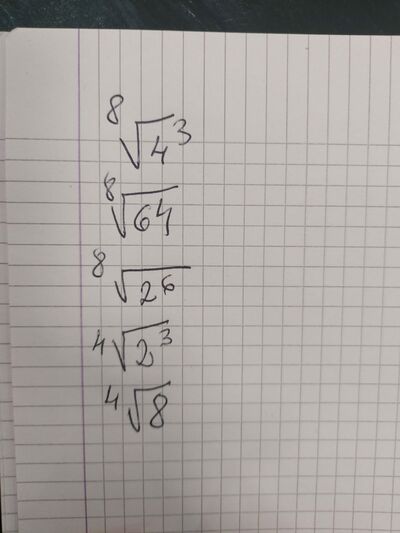 ⁸√4³
⁸√64
⁸√2⁶
⁴√2³
⁴√8